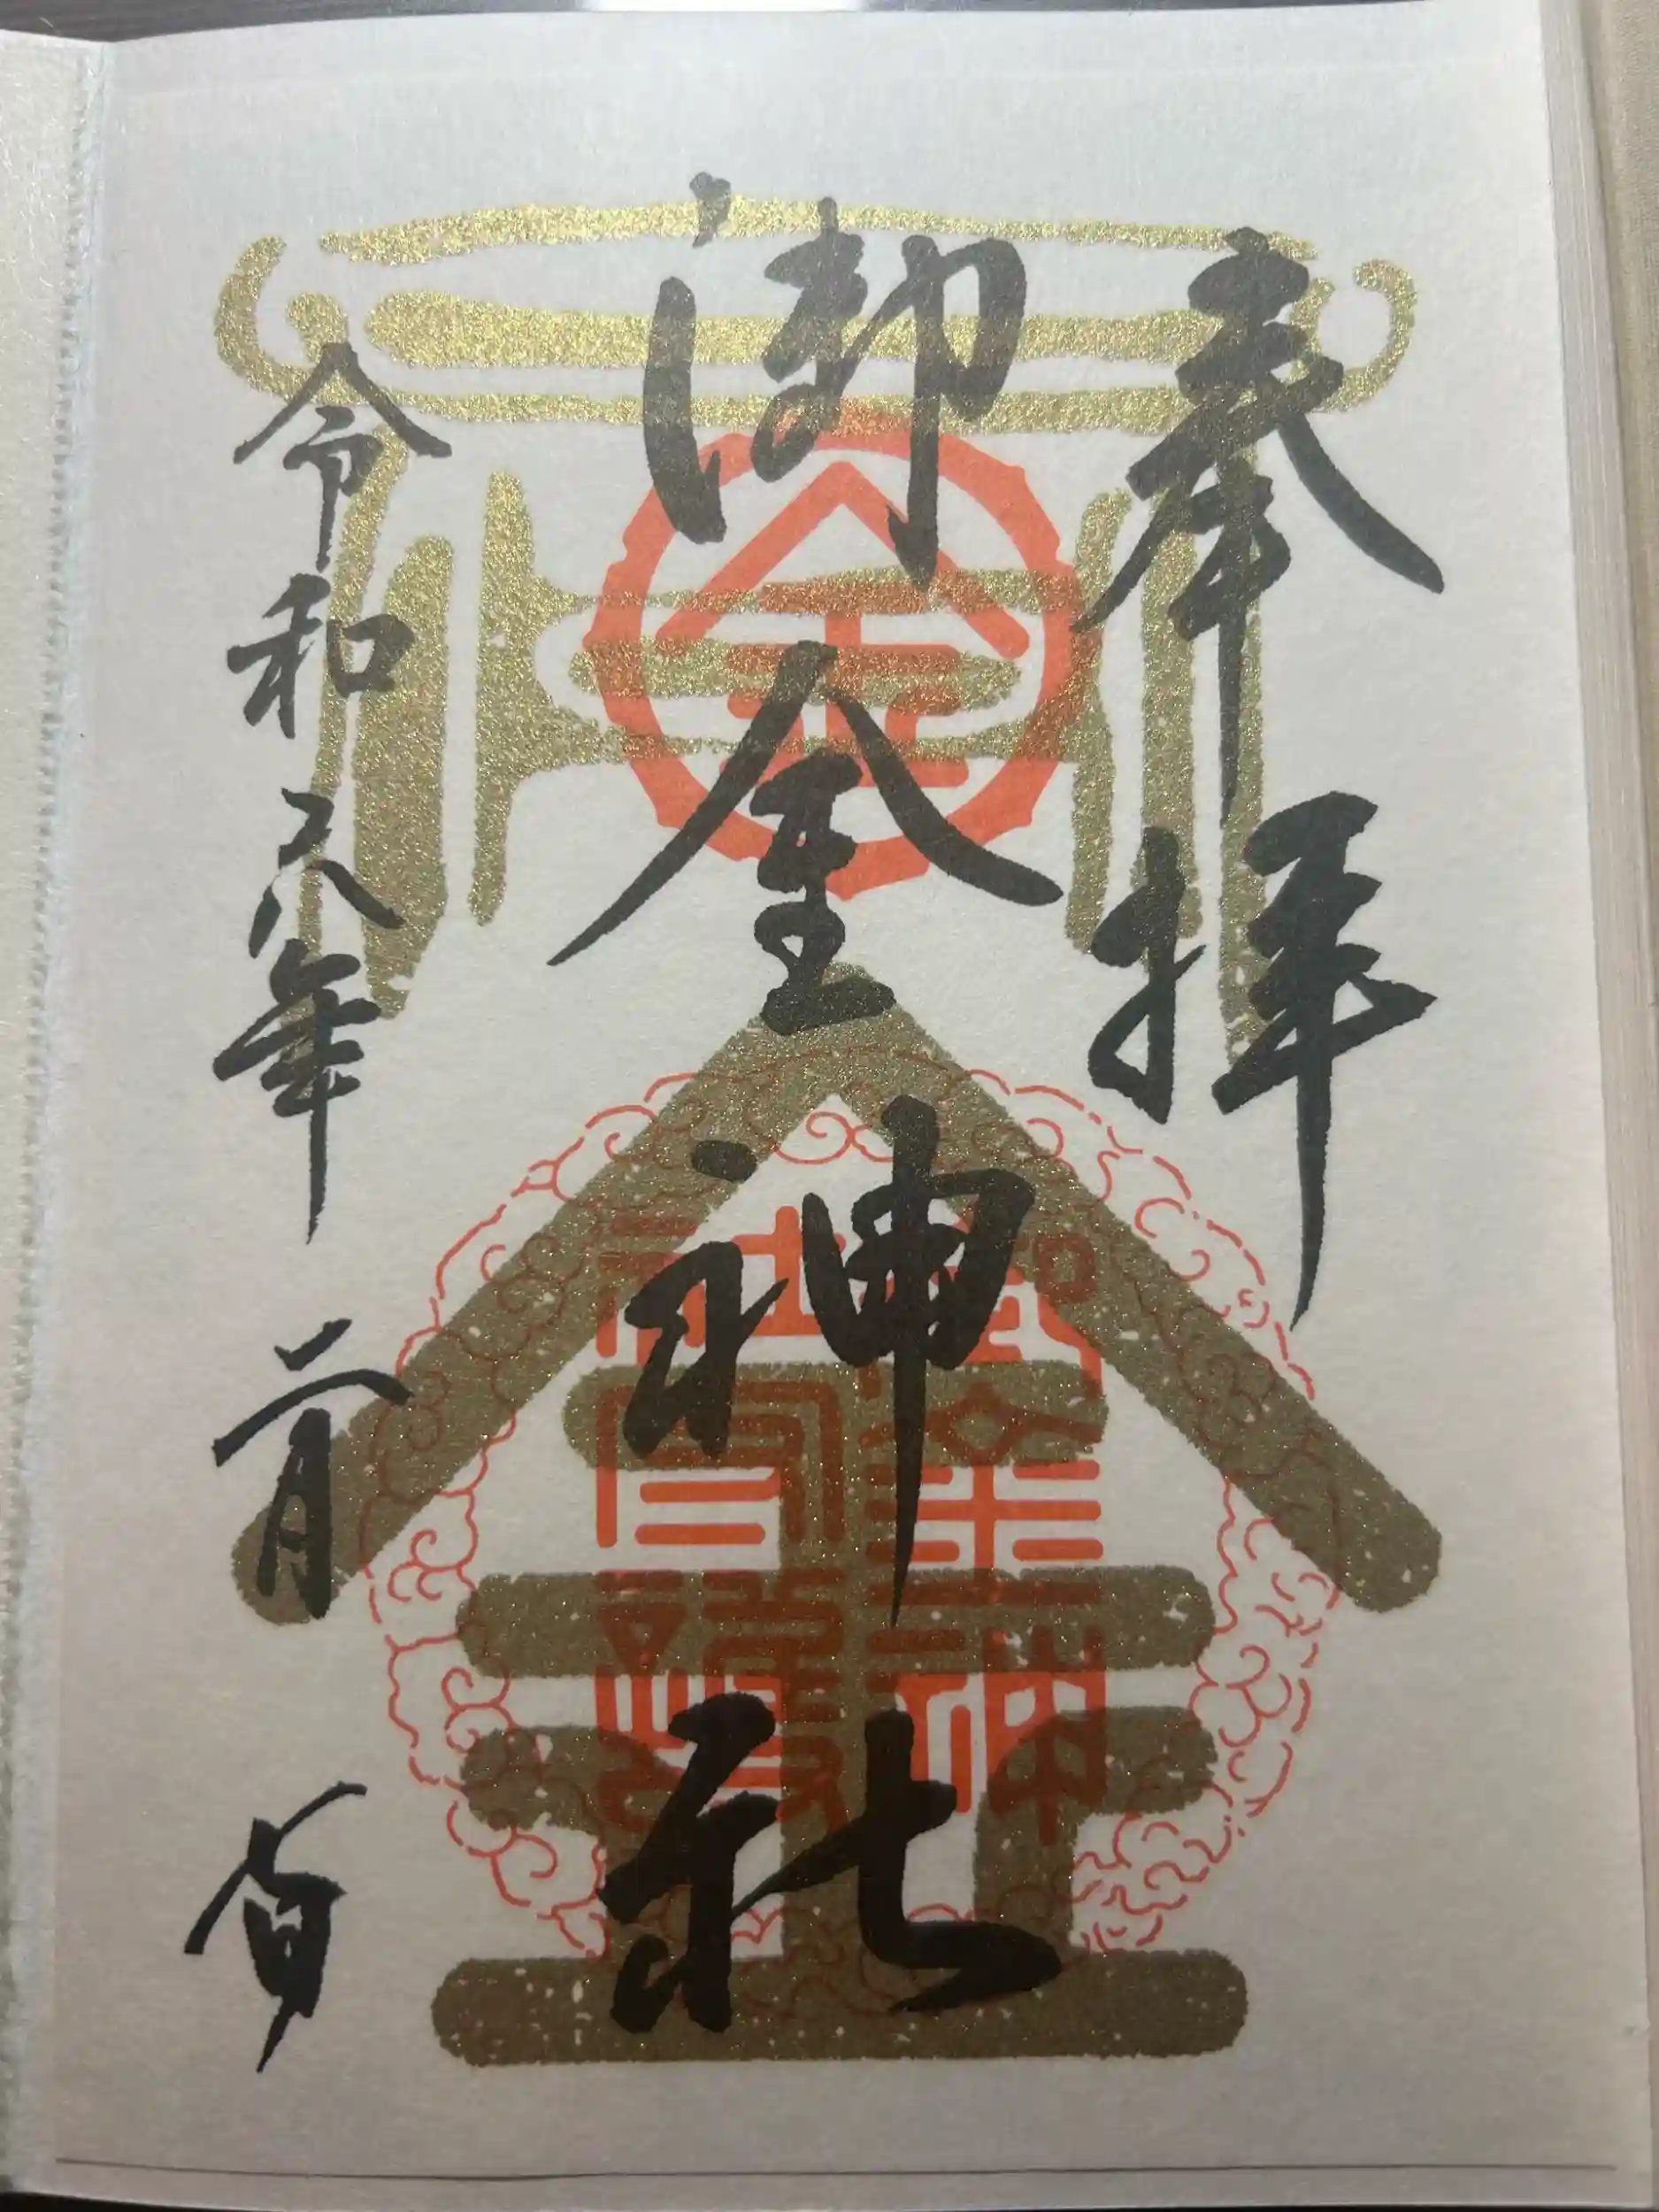 奉拝
御金神社
令和 年 二月 吉日
金
御金神
社